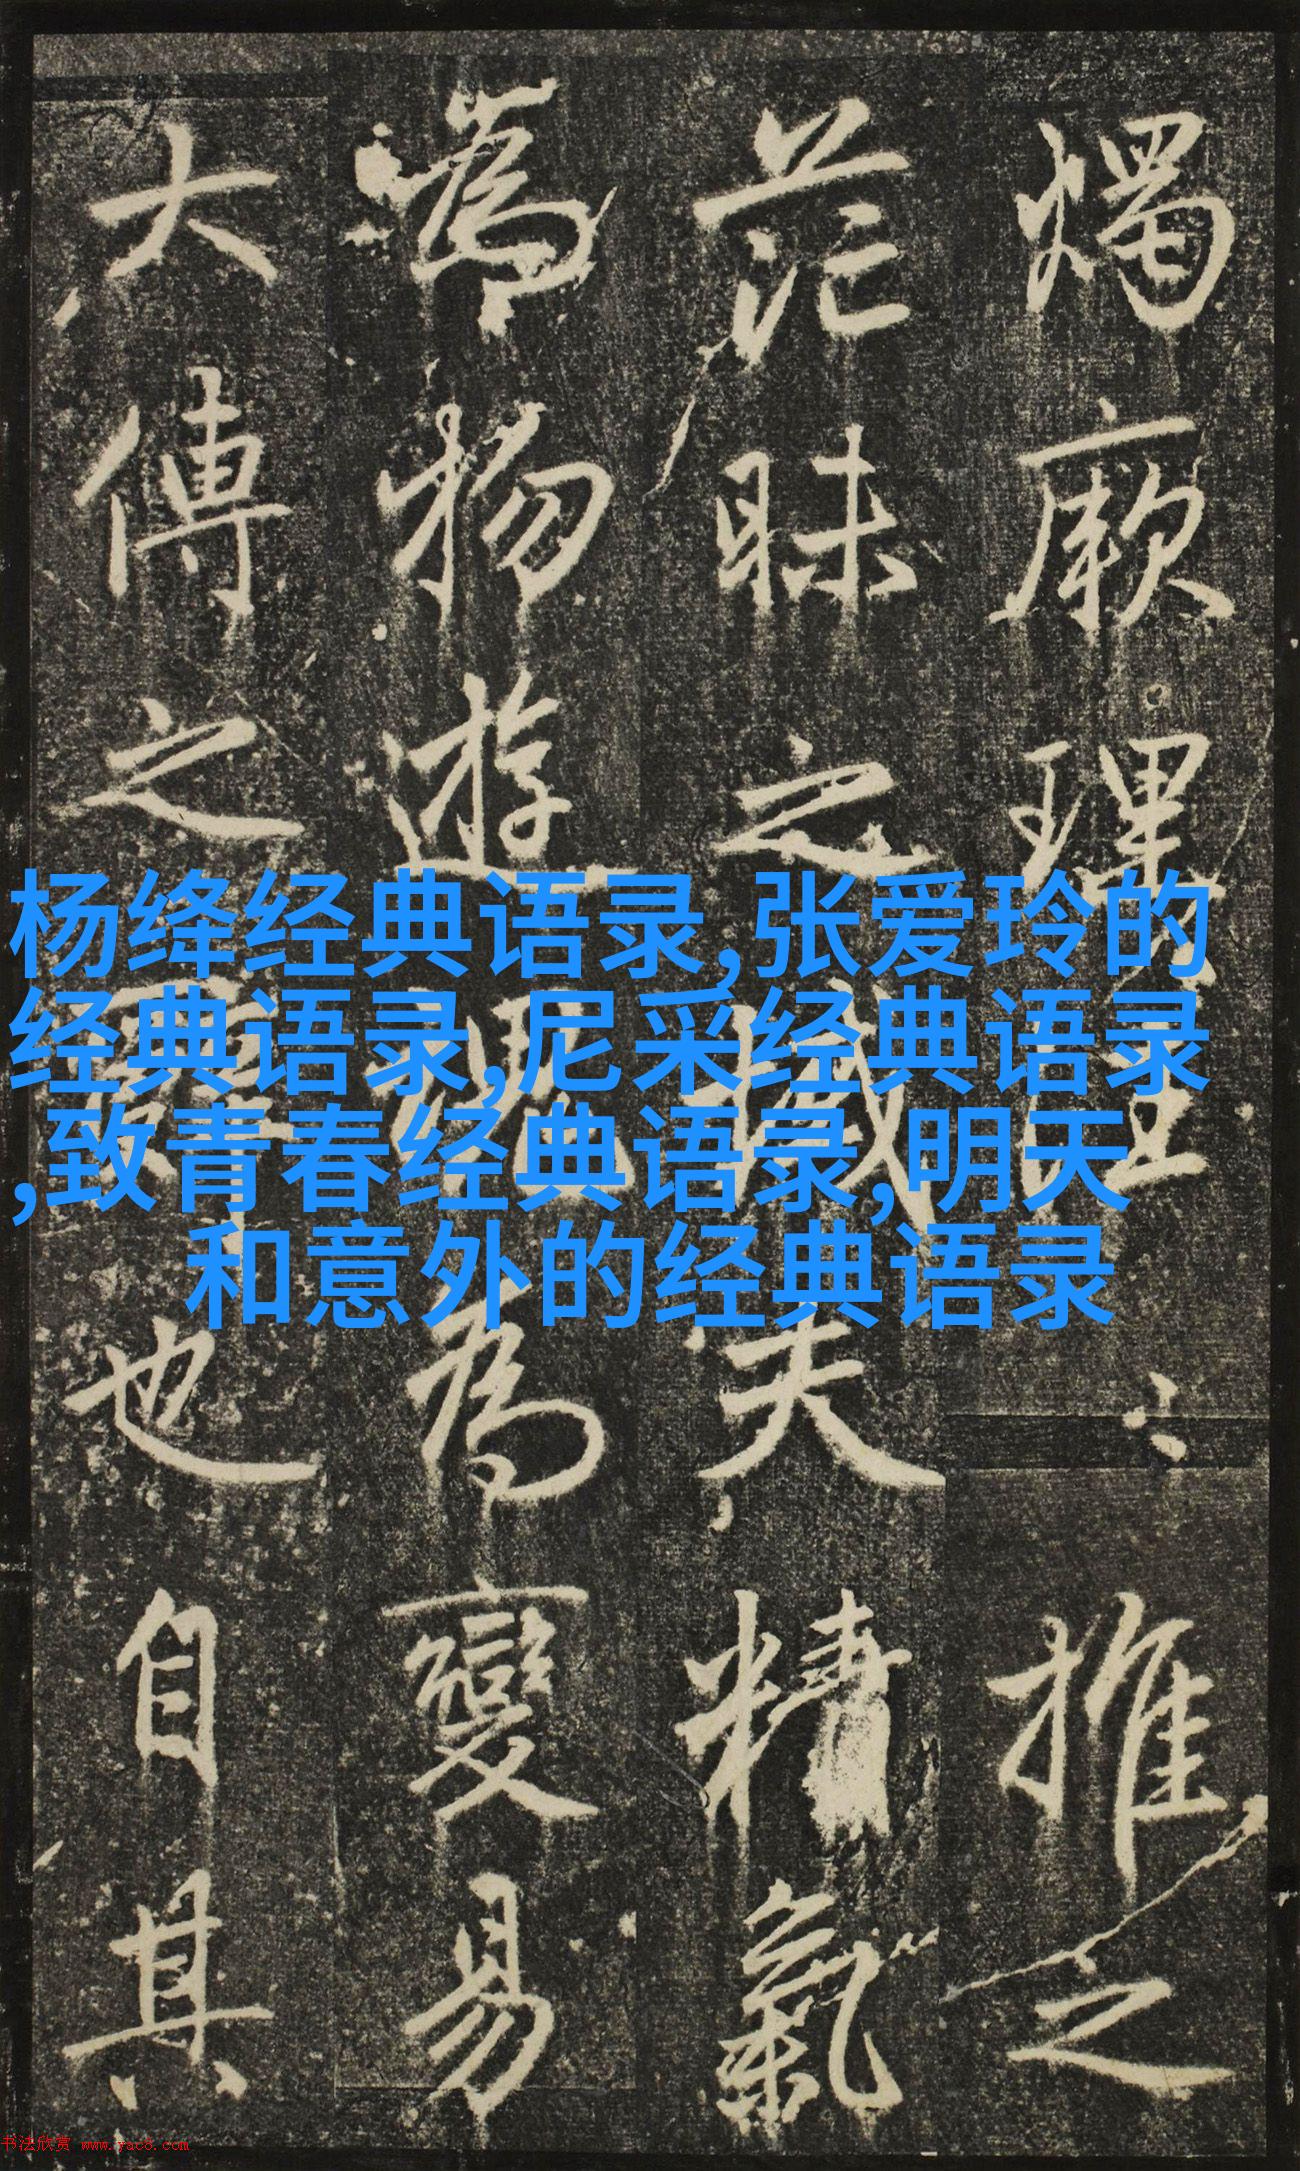 燭厥理
推之
茫昧之域夫精氣
為物遊魂為變易
大傳之
也自其
杨绛经典语录,张爱玲的
经典语录,尼采经典语录
,致青春经典语录,明天
和意外的经典语录
书法欣赏 www.yac8.com